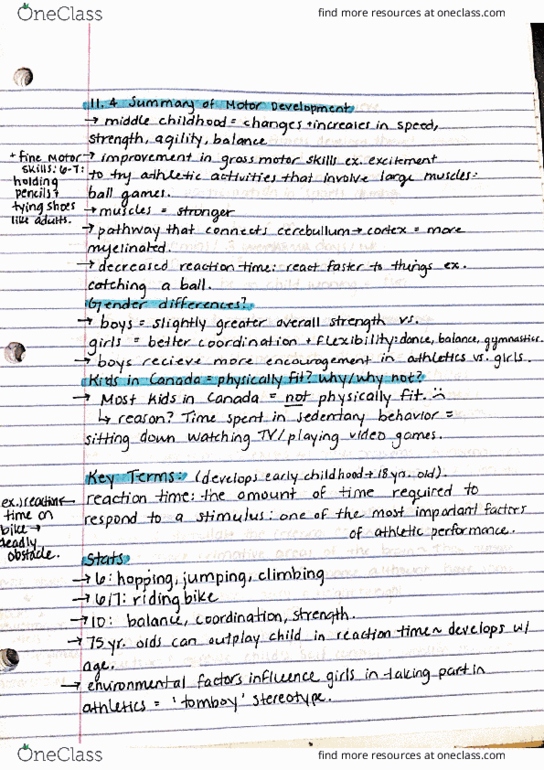 OneClass
find more resources at oneclass.com
11.4 Summary of Motor Development
→ middle childhood = changes + increases in speed,
strength, agility, balance
+ fine motor skills: 6-7: holding pencils + tying shoes like adults.
→ improvement in gross motor skills ex. excitement
to try athletic activities that involve large muscles:
ball games.
→ muscles = stronger
→ pathway that connects cerebellum → cortex = more
myelinated.
→ decreased reaction time: react faster to things ex.
catching a ball.
Gender differences?
→ boys = slightly greater overall strength vs.
girls = better coordination + flexibility: dance, balance, gymnastics.
→ boys recieve more encouragement in athletics vs. girls.
Kids in Canada = physically fit? why/why not?
→ Most kids in Canada = not physically fit. :(
↳ reason? Time spent in sedentary behavior =
sitting down watching TV/playing video games.
Key Terms: (develops early childhood → 18 yrs. old).
ex.) reaction time on bike → deadly obstacle.
reaction time: the amount of time required to
respond to a stimulus: one of the most important factors
of athletic performance.
Stats
→ 6: hopping, jumping, climbing
→ 6/7: riding bike
→ 10: balance, coordination, strength.
→ 75 yr. olds can outplay child in reaction time ~ develops w/
age.
→ environmental factors influence girls in taking part in
athletics = 'tomboy' stereotype.
OneClass
find more resources at oneclass.com